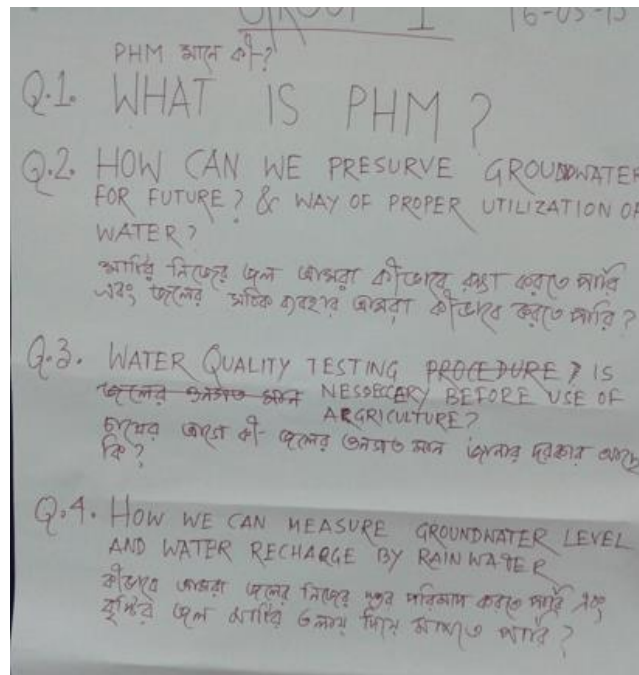 GROUP 1 16-05-15
PHM মানে কী-?
Q.1. WHAT IS PHM ?
Q.2. HOW CAN WE PRESURVE GROUNDWATER
FOR FUTURE ? & WAY OF PROPER UTILIZATION OF
WATER ?
মাটির নিচের জল আমরা কীভাবে রক্ষা করতে পারি
এবং জলের সঠিক ব্যবহার আমরা কীভাবে করতে পারি ?
Q.3. WATER QUALITY TESTING PROCEDURE ? IS
জলের গুনগত মান NESSECCERY BEFORE USE OF
ARGRICULTURE?
চাষের আগে কী- জলের গুনগত মান জানার দরকার আছে
কি ?
Q.4. HOW WE CAN MEASURE GROUNDWATER LEVEL
AND WATER RECHARGE BY RAIN WATER
কীভাবে আমরা জলের নিচের স্তর পরিমাপ করতে পারি এবং
বৃষ্টির জল মাটির তলায় দিয়ে পারি ?